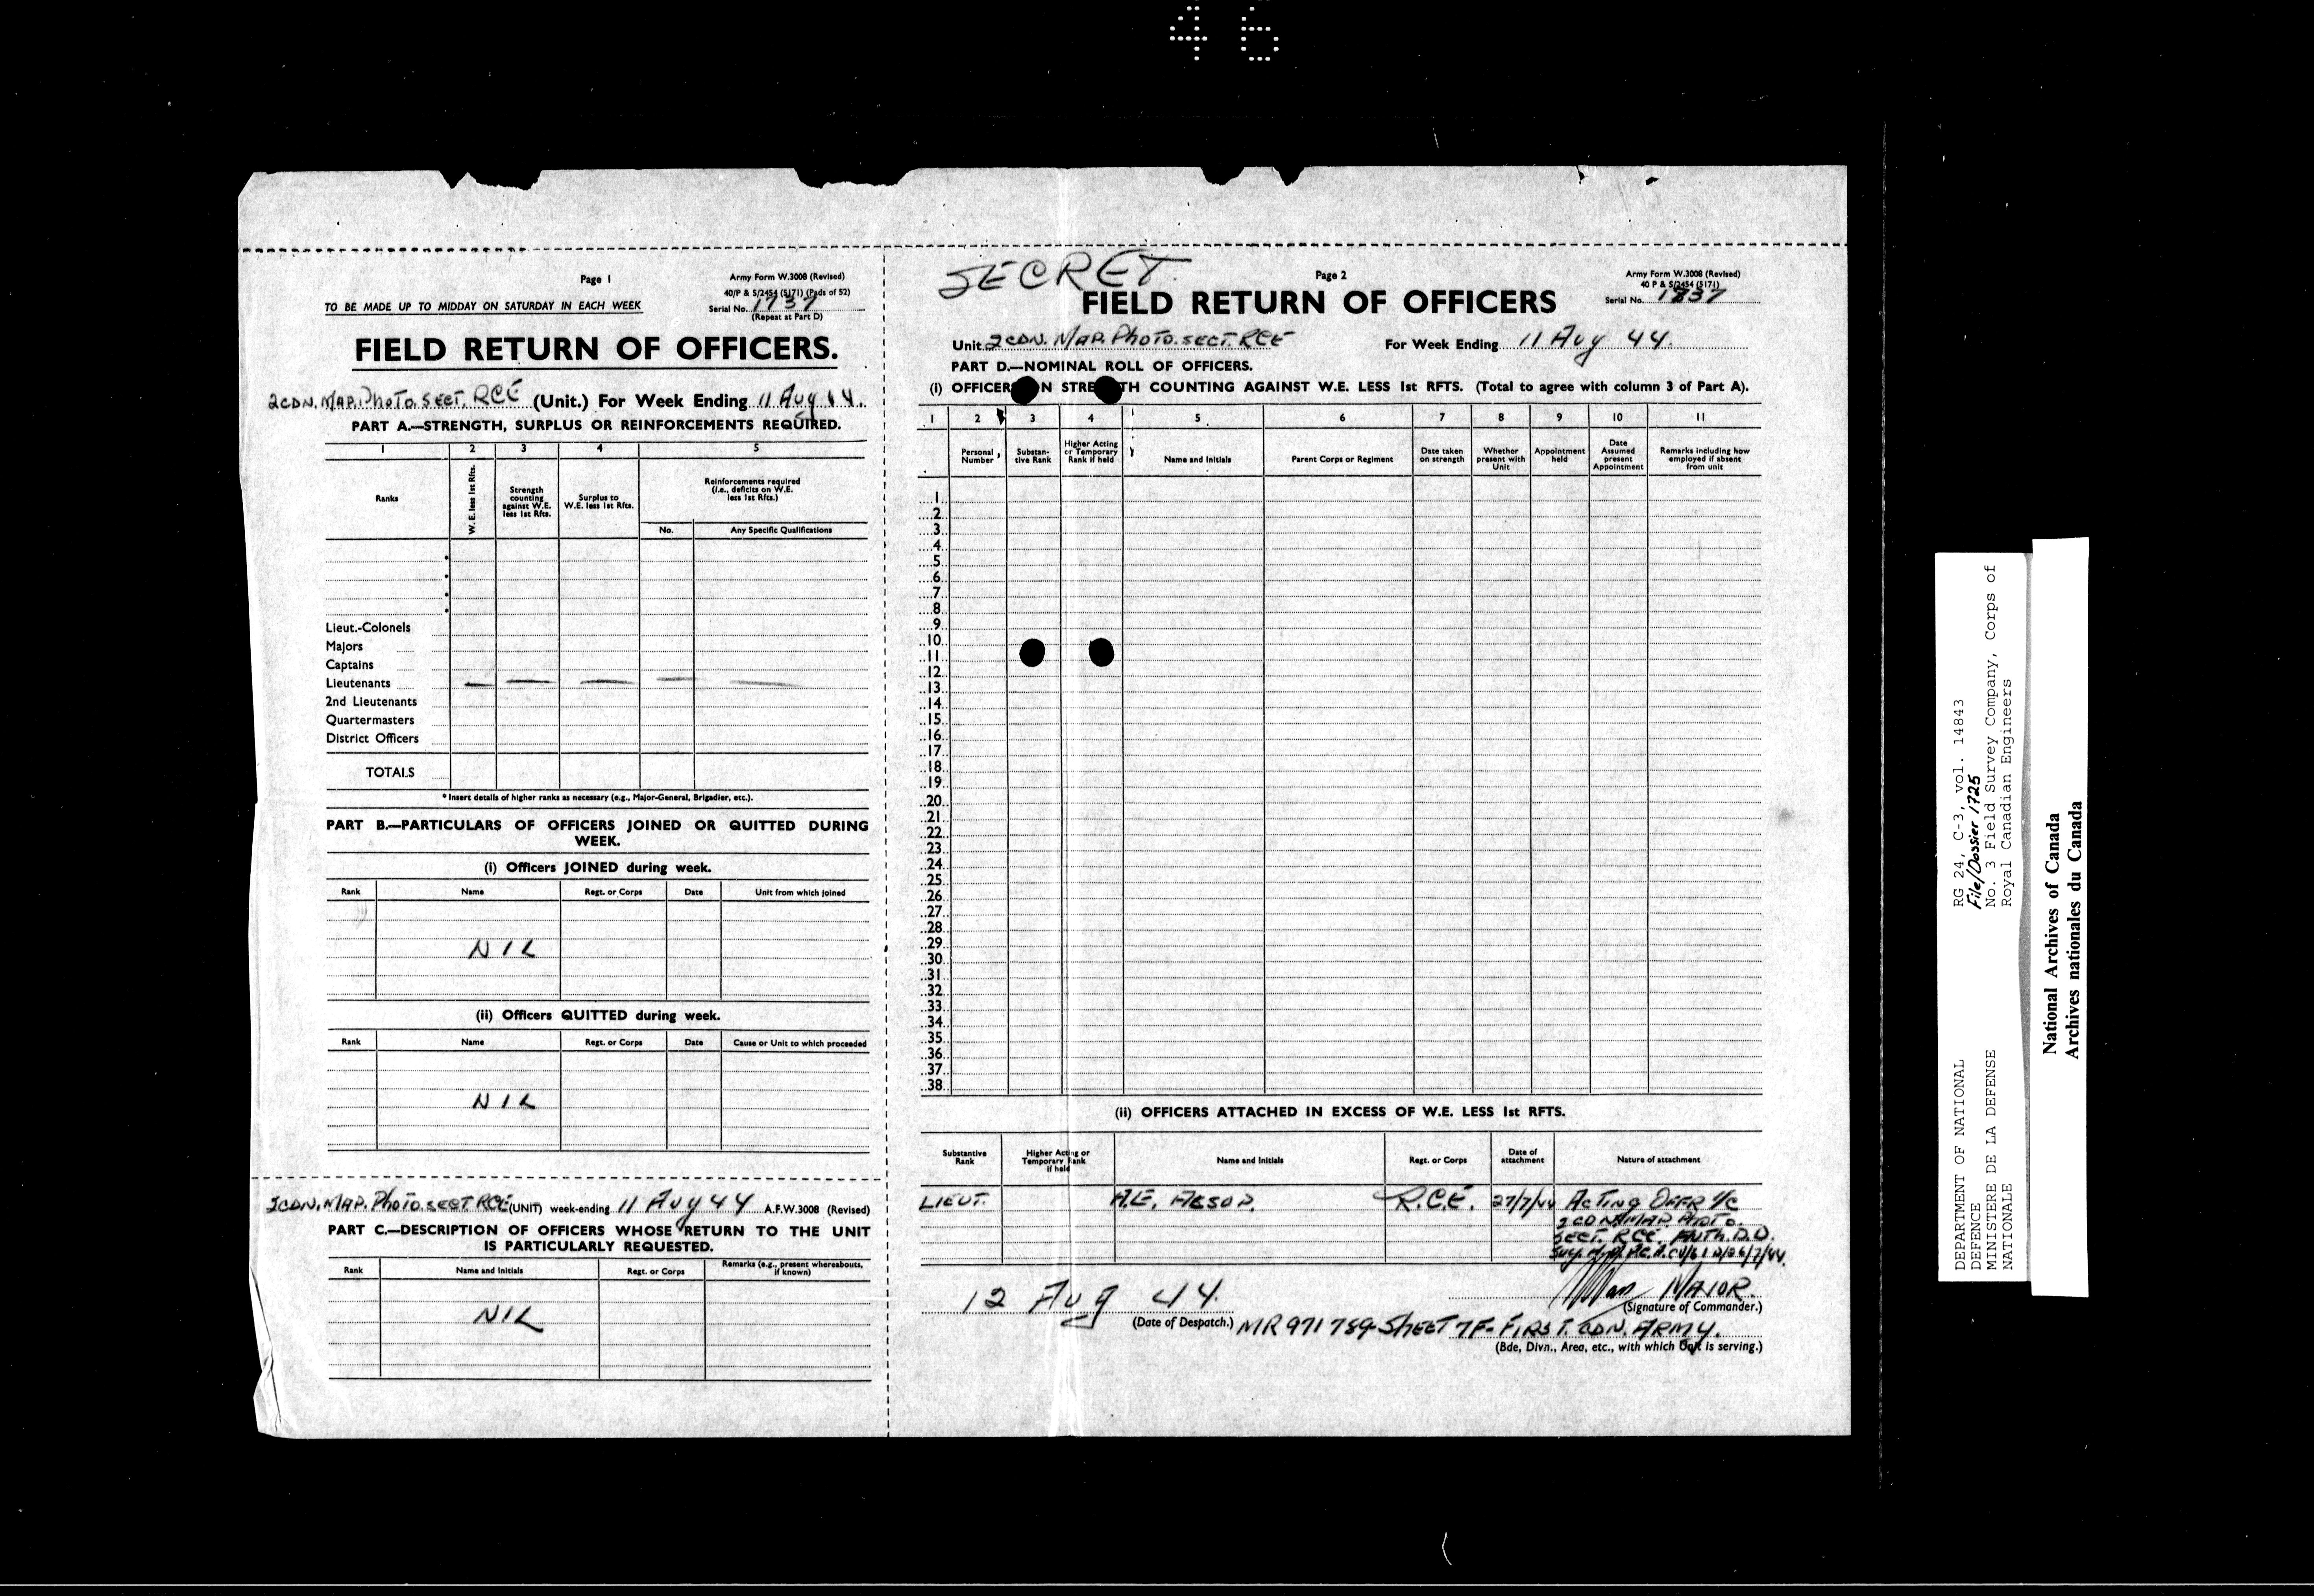 46
Page 1
Army Form W.3008 (Revised)
40/P & S/2454 (5171) (Pads of 52)
TO BE MADE UP TO MIDDAY ON SATURDAY IN EACH WEEK
Serial No. 1737
(Repeat at Part D)
FIELD RETURN OF OFFICERS.
2 CDN. MAP. PhoTo. SECT. RCE (Unit.) For Week Ending 11 Aug 44.
PART A.—STRENGTH, SURPLUS OR REINFORCEMENTS REQUIRED.
1 2 3 4 5
Ranks
W. E. less 1st Rfts.
Strength counting against W.E. less 1st Rfts.
Surplus to W.E. less 1st Rfts.
Reinforcements required (i.e., deficits on W.E. less 1st Rfts.)
No. Any Specific Qualifications
Lieut.-Colonels
Majors
Captains
Lieutenants — — — — —
2nd Lieutenants
Quartermasters
District Officers
TOTALS
* Insert details of higher ranks as necessary (e.g., Major-General, Brigadier, etc.).
PART B.—PARTICULARS OF OFFICERS JOINED OR QUITTED DURING
WEEK.
(i) Officers JOINED during week.
Rank Name Regt. or Corps Date Unit from which joined
NIL
(ii) Officers QUITTED during week.
Rank Name Regt. or Corps Date Cause or Unit to which proceeded
NIL
2 CDN. MAP. PhoTo. SECT RCE (UNIT) week-ending 11 Aug 44 A.F.W.3008 (Revised)
PART C.—DESCRIPTION OF OFFICERS WHOSE RETURN TO THE UNIT
IS PARTICULARLY REQUESTED.
Rank Name and Initials Regt. or Corps Remarks (e.g., present whereabouts, if known)
NIL
SECRET
Page 2
Army Form W.3008 (Revised)
40 P & S/2454 (5171)
Serial No. 1837
FIELD RETURN OF OFFICERS
Unit 2 CDN. MAP. PhoTo. SECT. RCE For Week Ending 11 Aug 44.
PART D.—NOMINAL ROLL OF OFFICERS.
(i) OFFICER N STRE TH COUNTING AGAINST W.E. LESS 1st RFTS. (Total to agree with column 3 of Part A).
1 2 3 4 5 6 7 8 9 10 11
Personal Number
Substan-tive Rank
Higher Acting or Temporary Rank if held
Name and Initials
Parent Corps or Regiment
Date taken on strength
Whether present with Unit
Appointment held
Date Assumed present Appointment
Remarks including how employed if absent from unit
1
2
3
4
5
6
7
8
9
10
11
12
13
14
15
16
17
18
19
20
21
22
23
24
25
26
27
28
29
30
31
32
33
34
35
36
37
38
(ii) OFFICERS ATTACHED IN EXCESS OF W.E. LESS 1st RFTS.
Substantive Rank
Higher Acting or Temporary Rank if held
Name and Initials
Regt. or Corps
Date of attachment
Nature of attachment
LIEUT. A.E. AESOP. R.C.E. 27/7/44 Acting OFFR I/C
2 CDN MAP. PhoTo.
SECT. RCE. AUTh. D.D.
12 Aug 44. MAJOR.
(Signature of Commander.)
(Date of Despatch.) MR 971789 Sheet 7F- FIRST. CDN. ARMY.
(Bde, Divn., Area, etc., with which Unit is serving.)
DEPARTMENT OF NATIONAL
DEFENCE
MINISTERE DE LA DEFENSE
NATIONALE
RG 24, C-3, vol. 14843
File/Dossier 1725
No. 3 Field Survey Company, Corps of
Royal Canadian Engineers
National Archives of Canada
Archives nationales du Canada